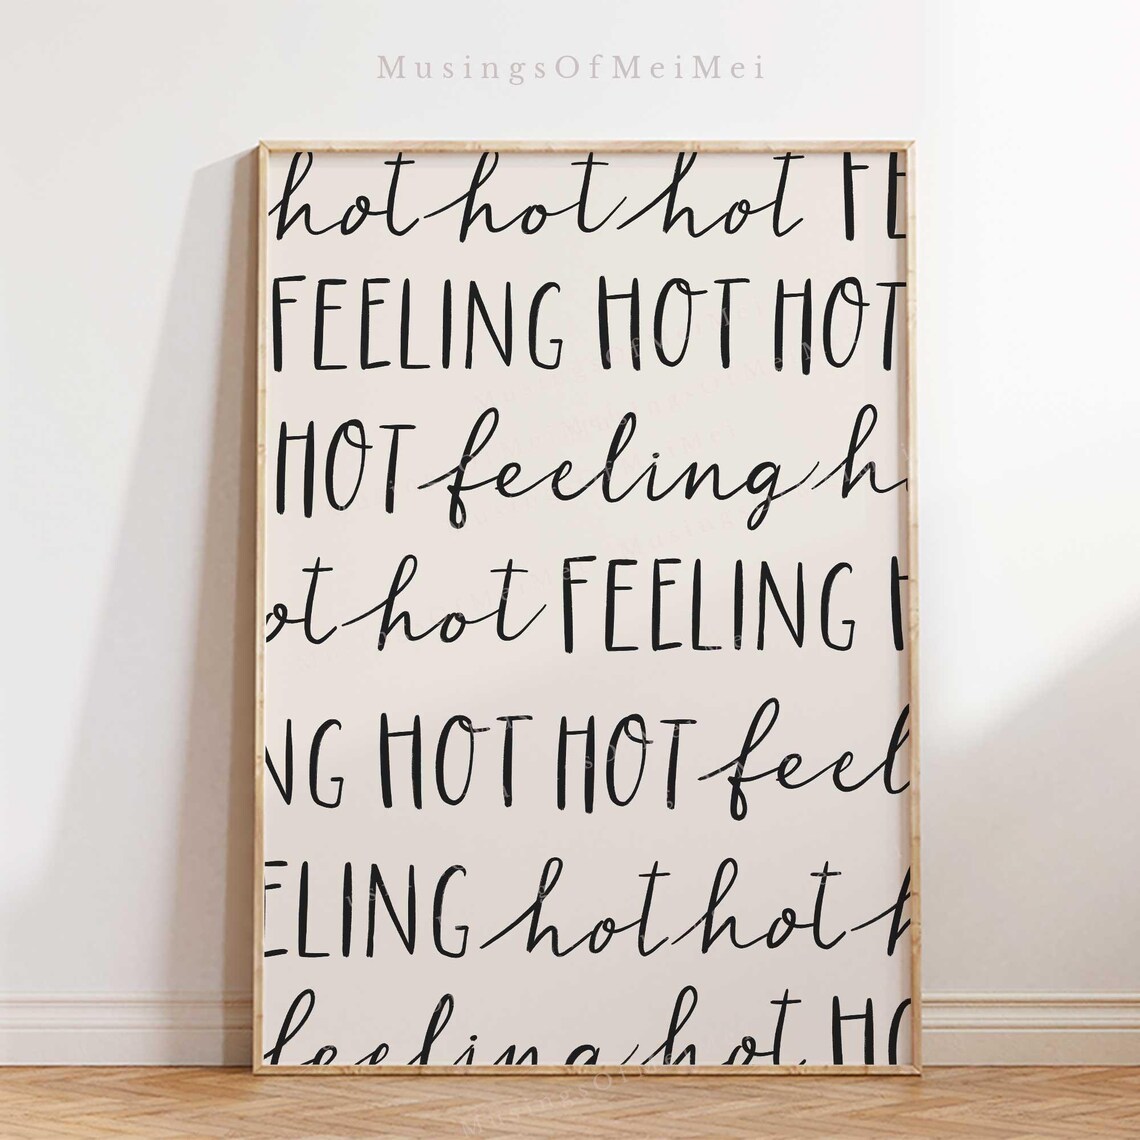 MusingsOfMeiMei
hot hot hot FE
FEELING HOT HOT
HOT feeling h
ot hot FEELING H
NG HOT HOT feel
ELING hot hot h
feeling hot HO